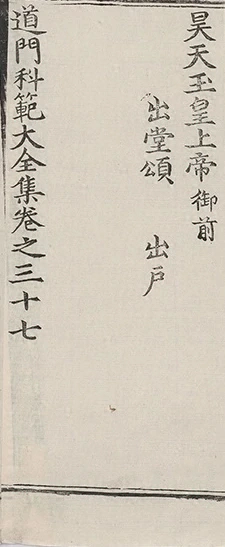 昊天玉皇上帝御前
出堂頌　出戶
道門科範大全集卷之三十七